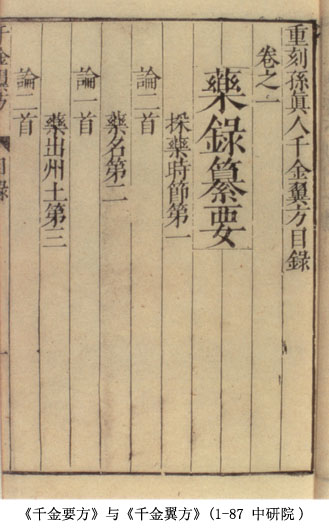 重刻孫眞人千金翼方目錄
卷之一
藥錄纂要
採藥時節第一
論二首
藥名第二
論一首
藥出州土第三
論二首
千金翼方 目錄
《千金要方》与《千金翼方》(1-87 中研院)